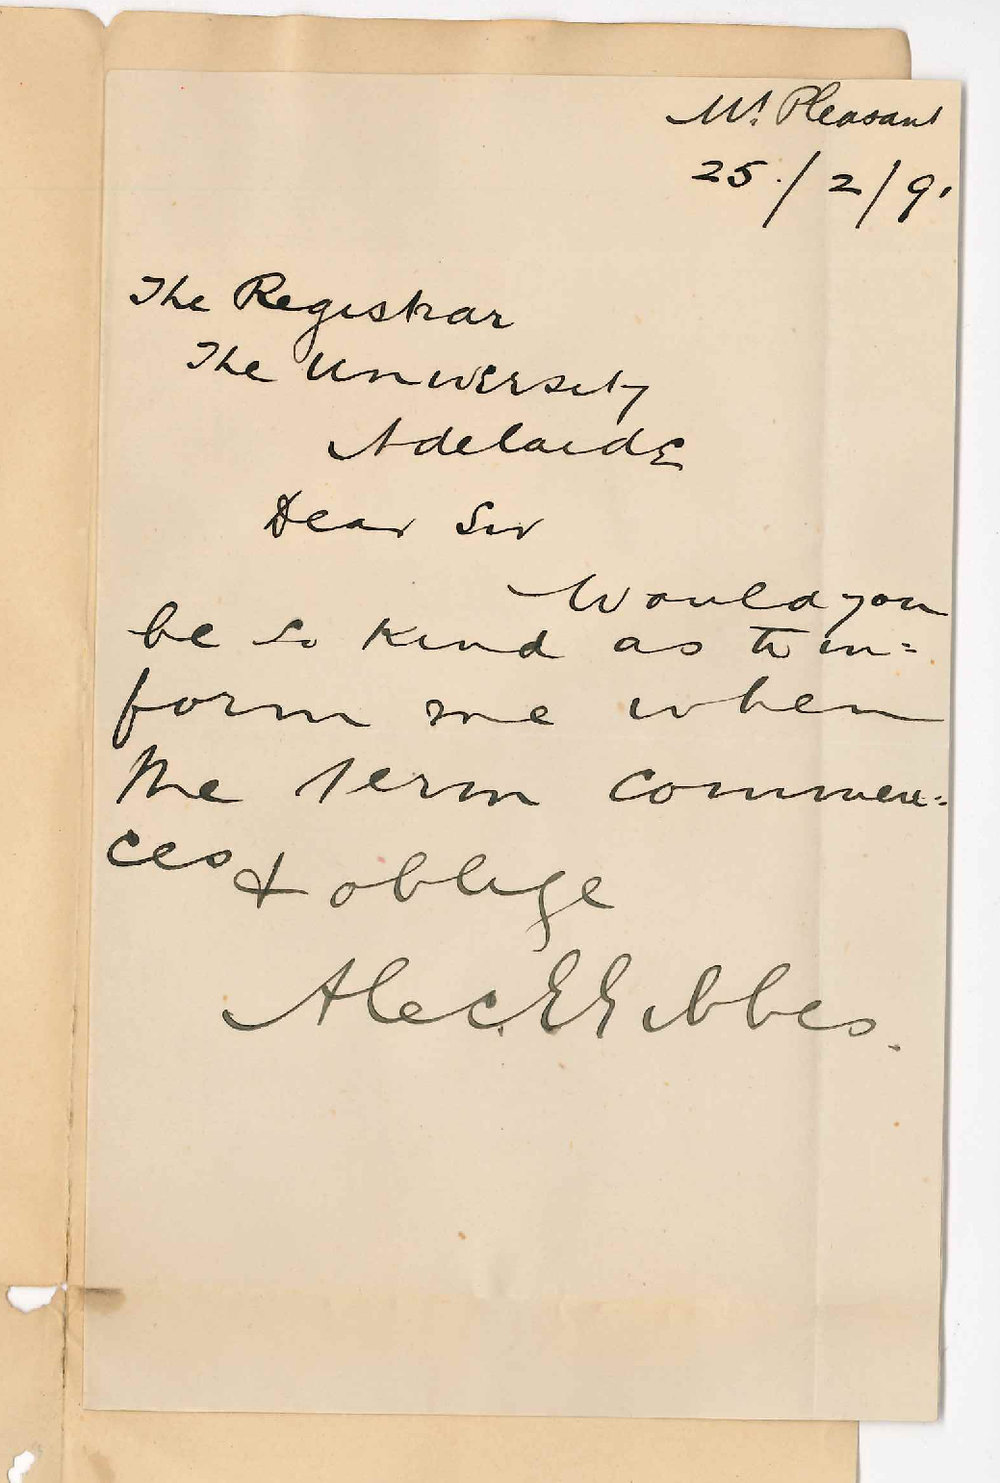 Mt. Pleasant
25./2/91
The Registrar
The University
Adelaide
Dear Sir
Would you
be so kind as to in=
form me when
the term commen=
ces & oblige
Alec. E E Gibbes.